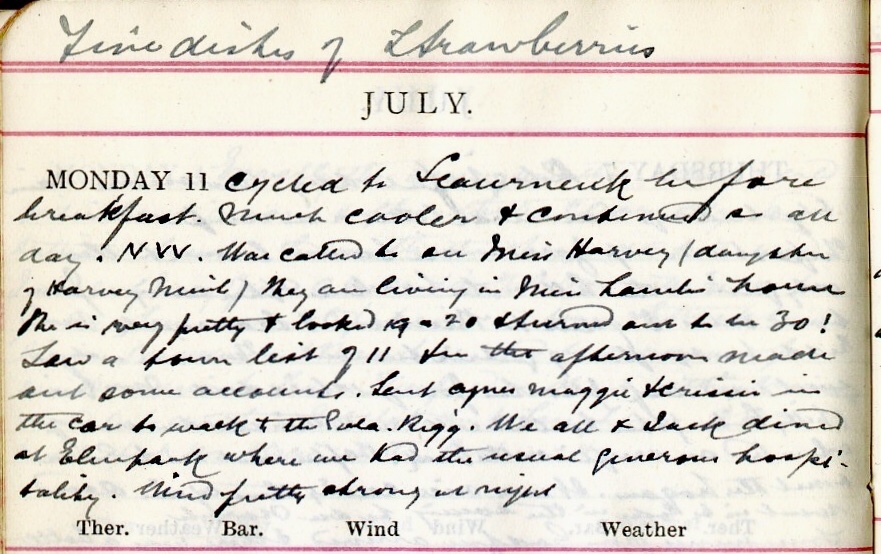 Fine dishes of Strawberries
JULY.
MONDAY 11 cycled to before
breakfast. Much cooler & continued so all
day. NW. Was called to see Miss Harvey (daughter
of Harvey ) They are living in Miss house
She is very pretty & looked 19 or 20 & turned out to be 30!
Saw a town list of 11 & in the afternoon made
out some accounts. Sent Agnes Maggie & Crissie in
the car to walk to the . We all & Jack dined
at Elmpark where we had the usual generous hospi-
tality. Wind pretty strong at night
Ther. Bar. Wind Weather